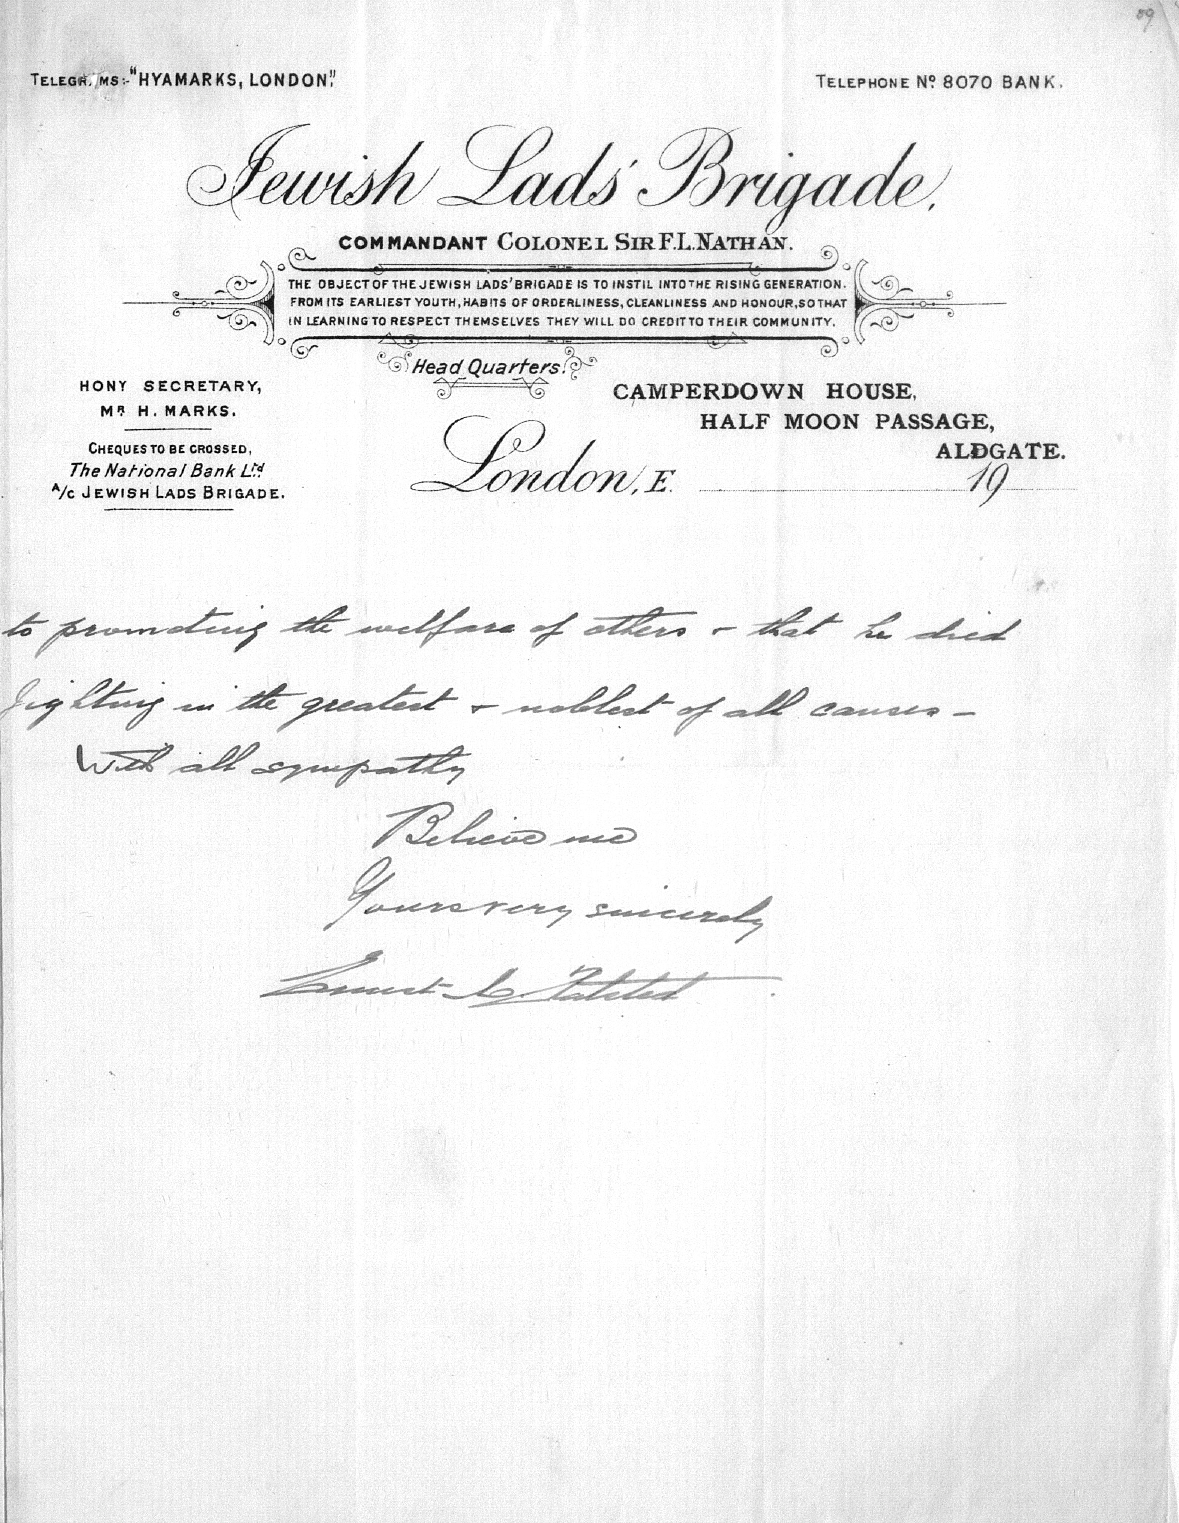 89
TELEGR MS:-"HYAMARKS, LONDON"
TELEPHONE No. 8070 BANK.
Jewish Lads' Brigade.
COMMANDANT COLONEL SIR F.L. NATHAN.
THE OBJECT OF THE JEWISH LADS' BRIGADE IS TO INSTIL INTO THE RISING GENERATION.
FROM ITS EARLIEST YOUTH, HABITS OF ORDERLINESS, CLEANLINESS AND HONOUR, SO THAT
IN LEARNING TO RESPECT THEMSELVES THEY WILL DO CREDIT TO THEIR COMMUNITY.
Head Quarters:
HONY SECRETARY,
MR H. MARKS.
CHEQUES TO BE CROSSED,
The National Bank Ltd
A/c JEWISH LADS BRIGADE.
CAMPERDOWN HOUSE,
HALF MOON PASSAGE,
ALDGATE.
London, E. 19
to promoting the welfare of others & that he died
fighting in the greatest & noblest of all causes -
With all sympathy
Believe me
Yours very sincerely
Ernest